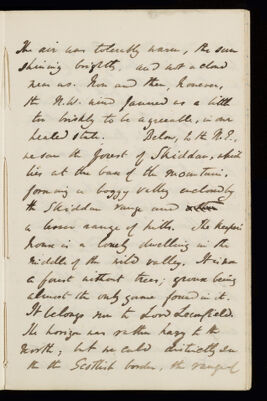 The air was tolerably warm, the sun
shining brightly, and not a cloud
near us. Now and then, however,
the N.W. wind fanned us a little
too briskly to be agreeable, in our
heated state. Below, to the N.E.,
we saw the Forest of Skiddaw, which
lies at the base of the mountain,
forming a boggy valley enclosed by
the Skiddaw range and
a lesser range of hills. The keeper's
house is a lonely dwelling in the
middle of the wild valley. It is now
a forest without trees; grouse being
almost the only game found in it.
It belongs now to Lord Leconfield.
The horizon was rather hazy to the
North; but we could distinctly see
the the Scottish border, the range of